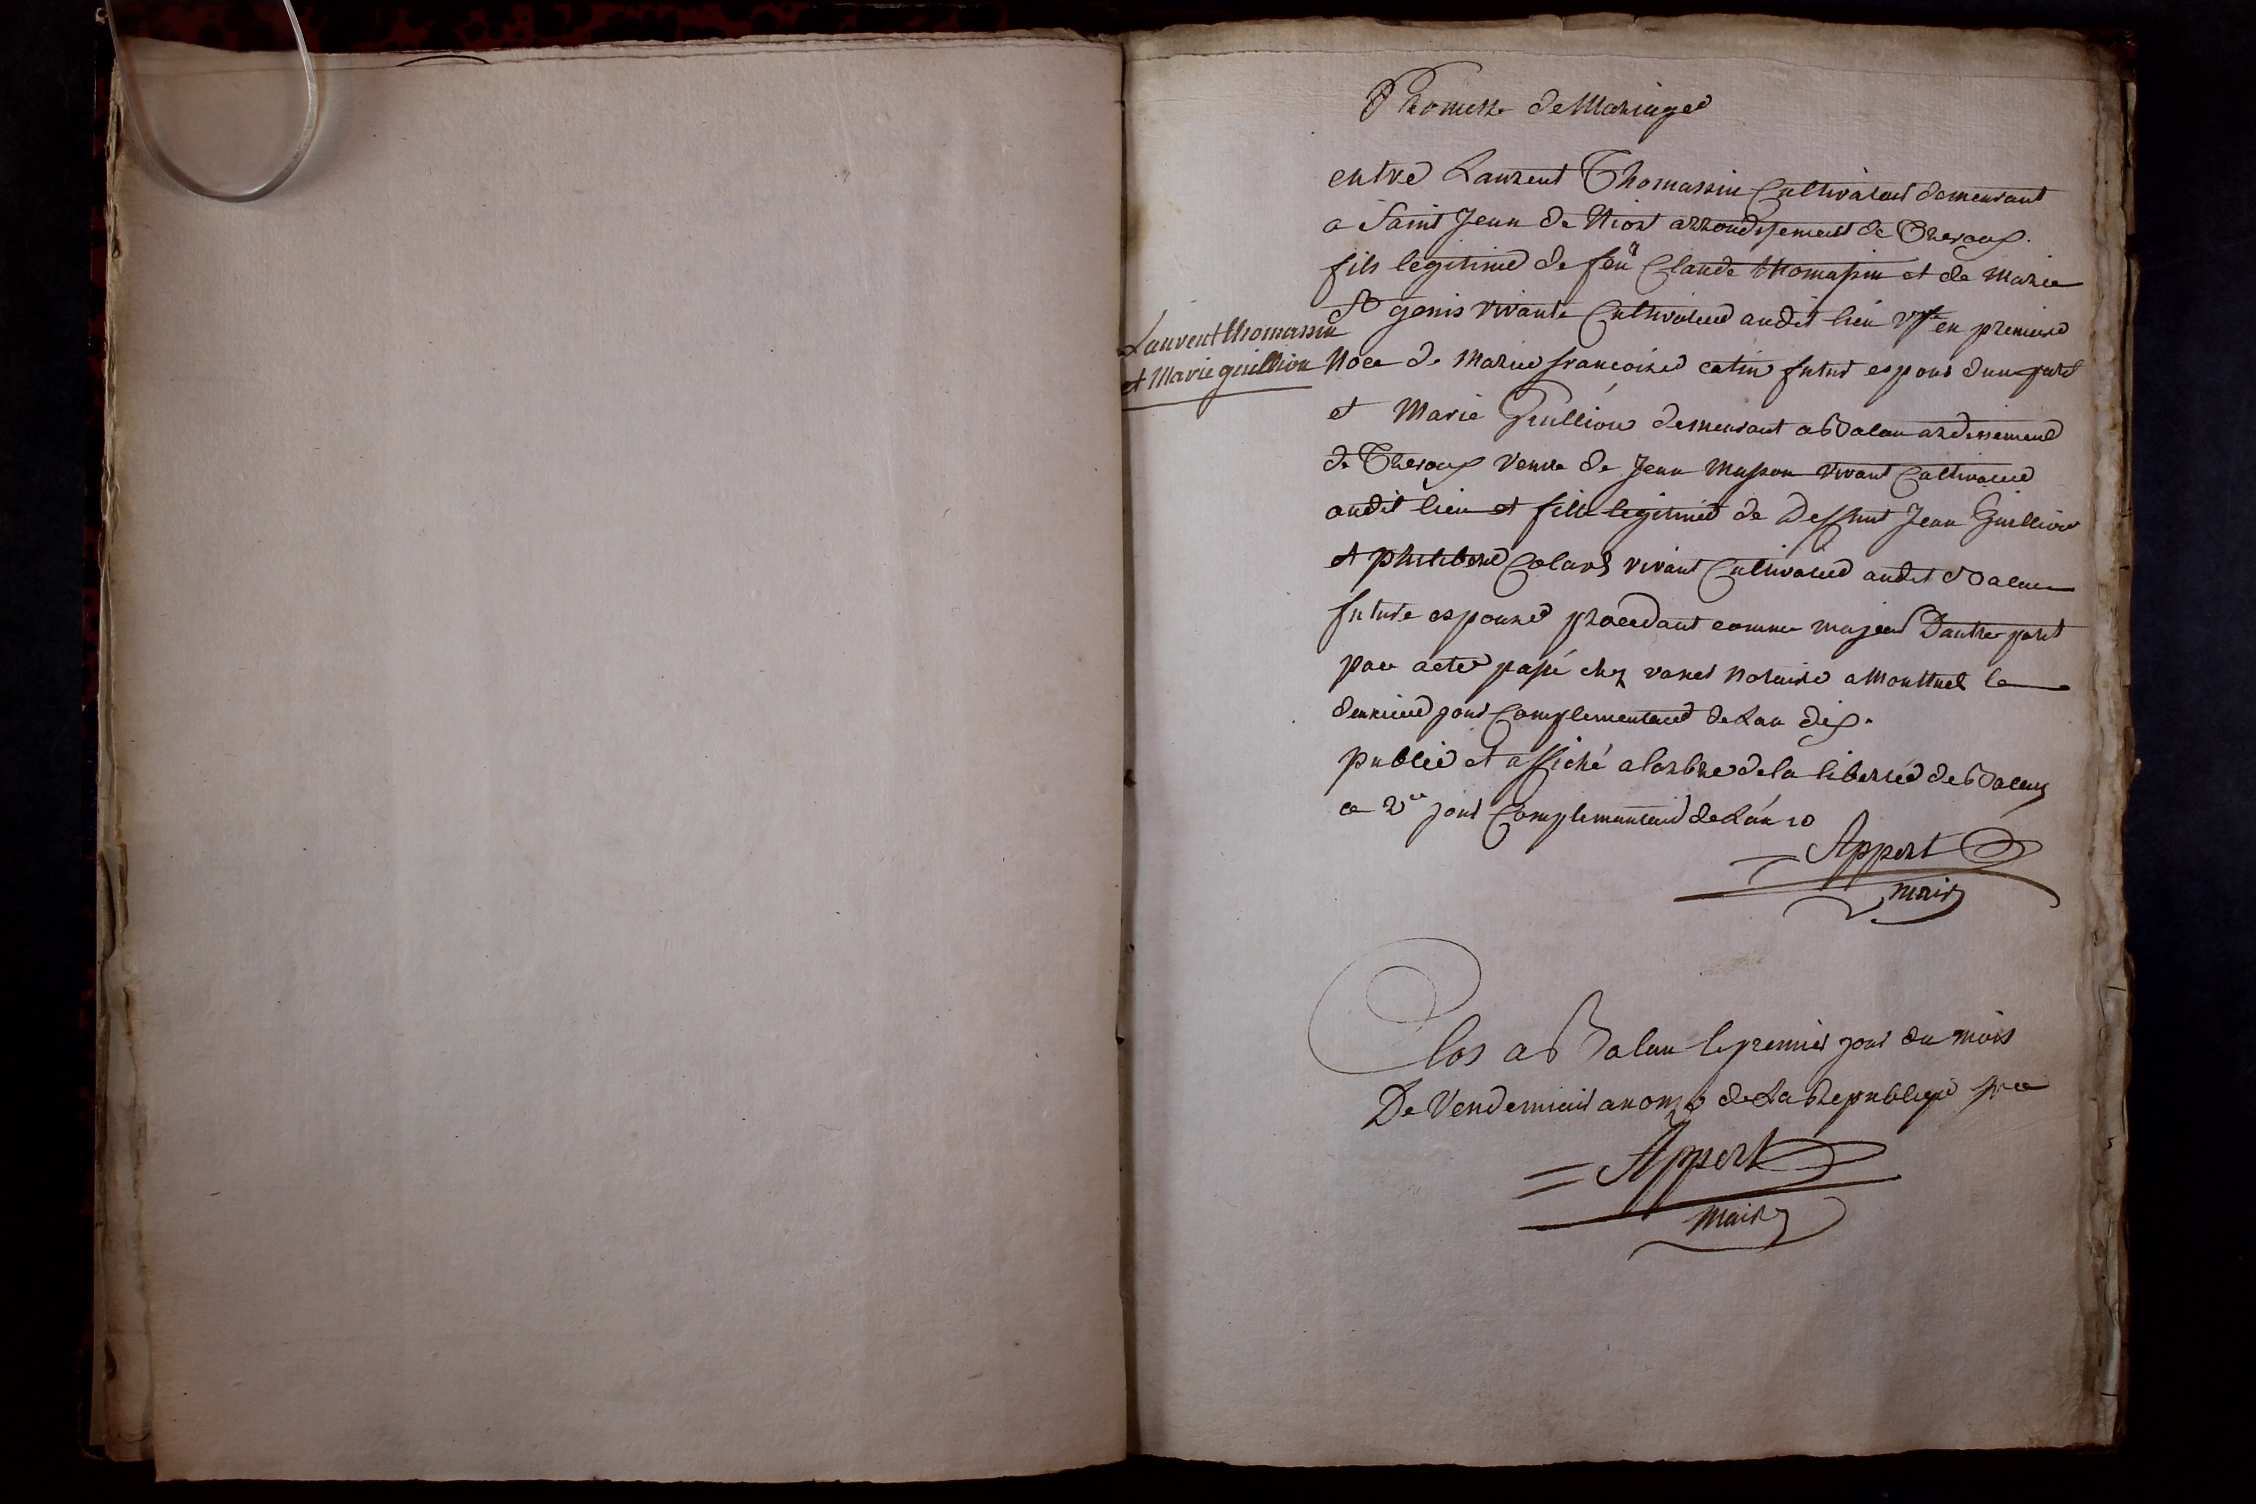 Promesse de Mariage
entre Laurent Thomassin Cultivateur demeurant
a Saint Jean de Niost arrondissement de Trevoux.
fils legitime de feu Claude thomassin et de marie
St genis vivante Cultivateur audit lieu vf en premiere
Noce de Marie francoise catin futur espous dune part
Laurent thomassin
et Marie guillion
et Marie Guillion demeurant a Balan ardissement
de Trevoux veuve de Jean Masson vivant Cultivateur
audit lieu et fille legitime de deffunt Jean Guillion
et philiberte Colard vivant Cultivateur audit Balan
future espouse procedant comme majeur Dautre part
par acte passé chez notaire a Montluel le
dernier jour Complementaire de Lan dix.
publié et affiché a larbre de la liberté de Balan
ce 2e jour Complementaire de Lan 10
Appert
maire
Clos a Balan le premier jour du mois
De Vendemiair an onze de La Republique fce
Appert
Maire